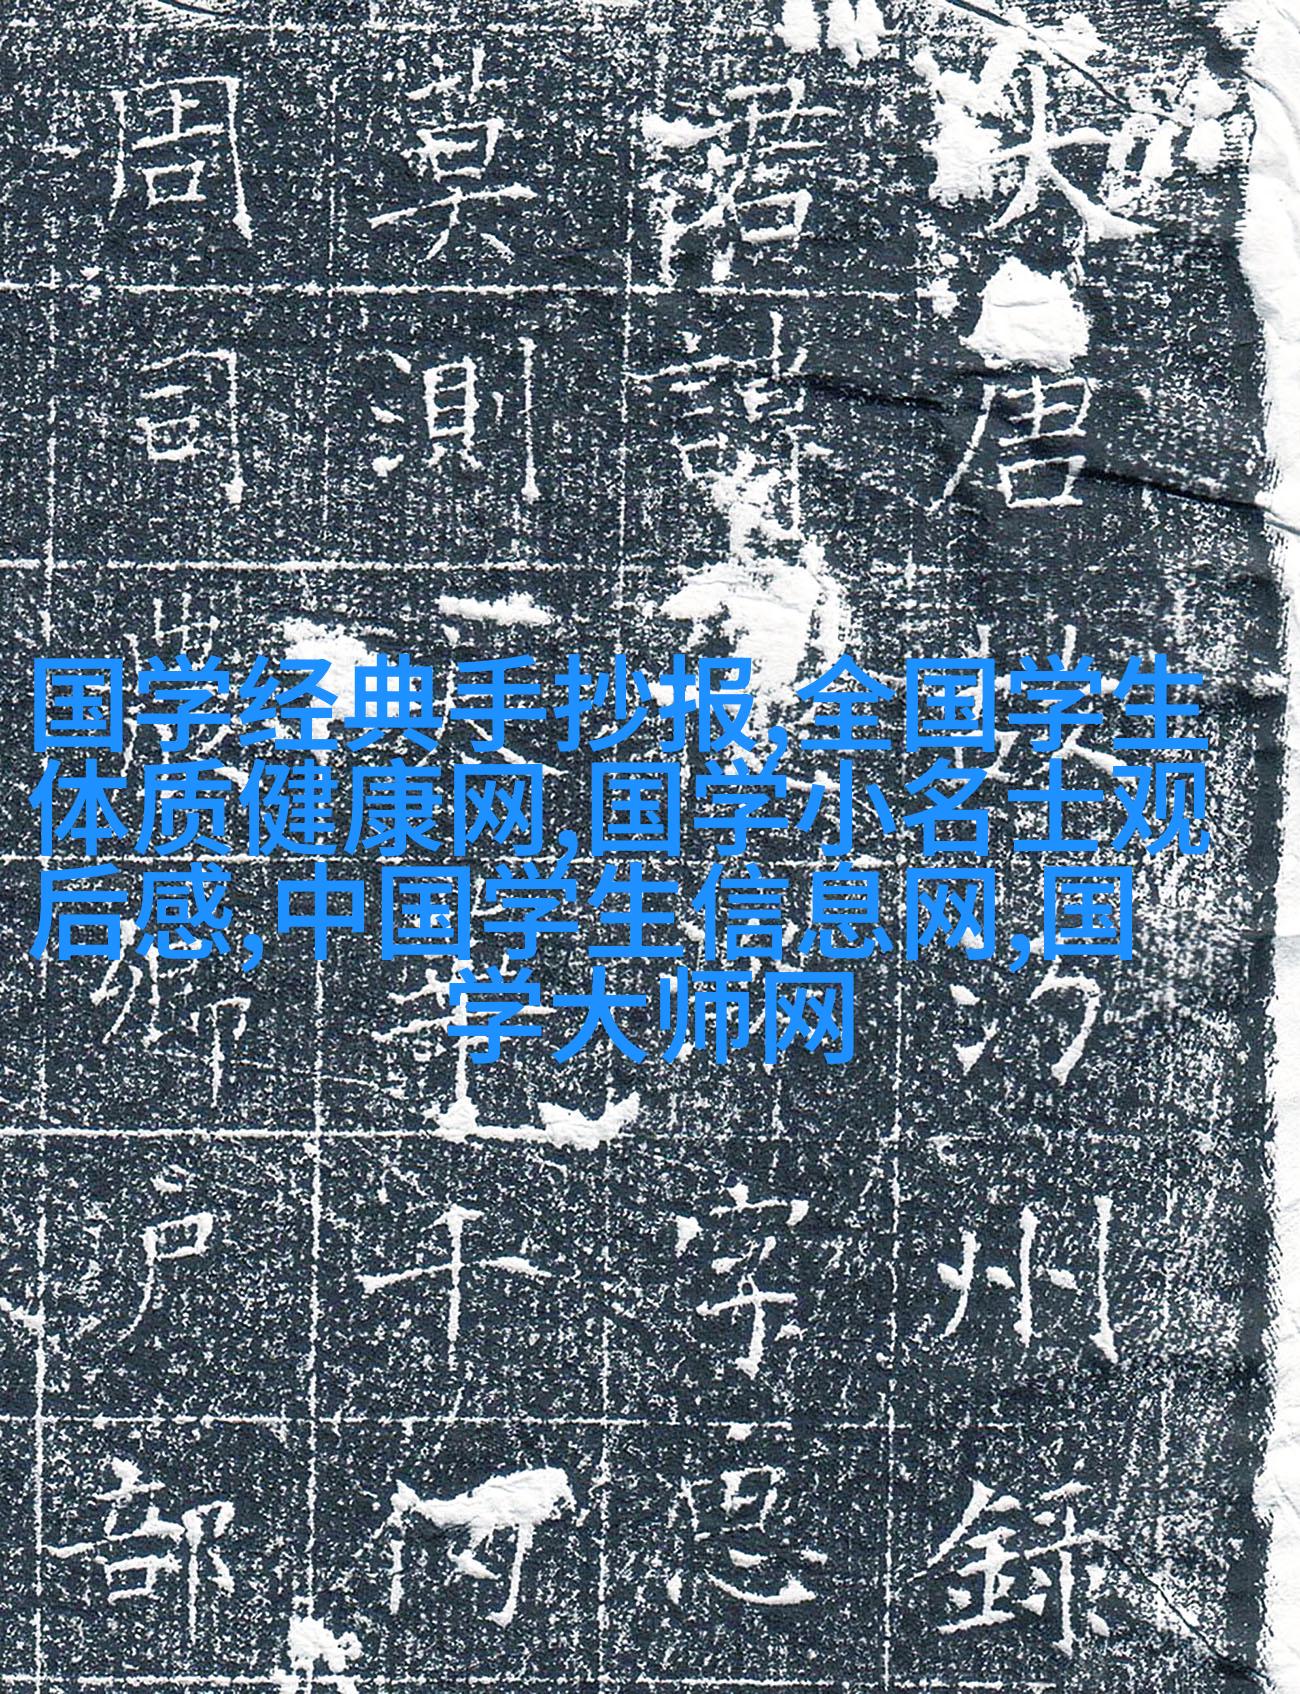 国学经典手抄报,全国学生
体质健康网,国学小名士观
后感,中国学生信息网,国
学大师网
大唐故汾州錄
君諱字思
莫測
周司卿戶部